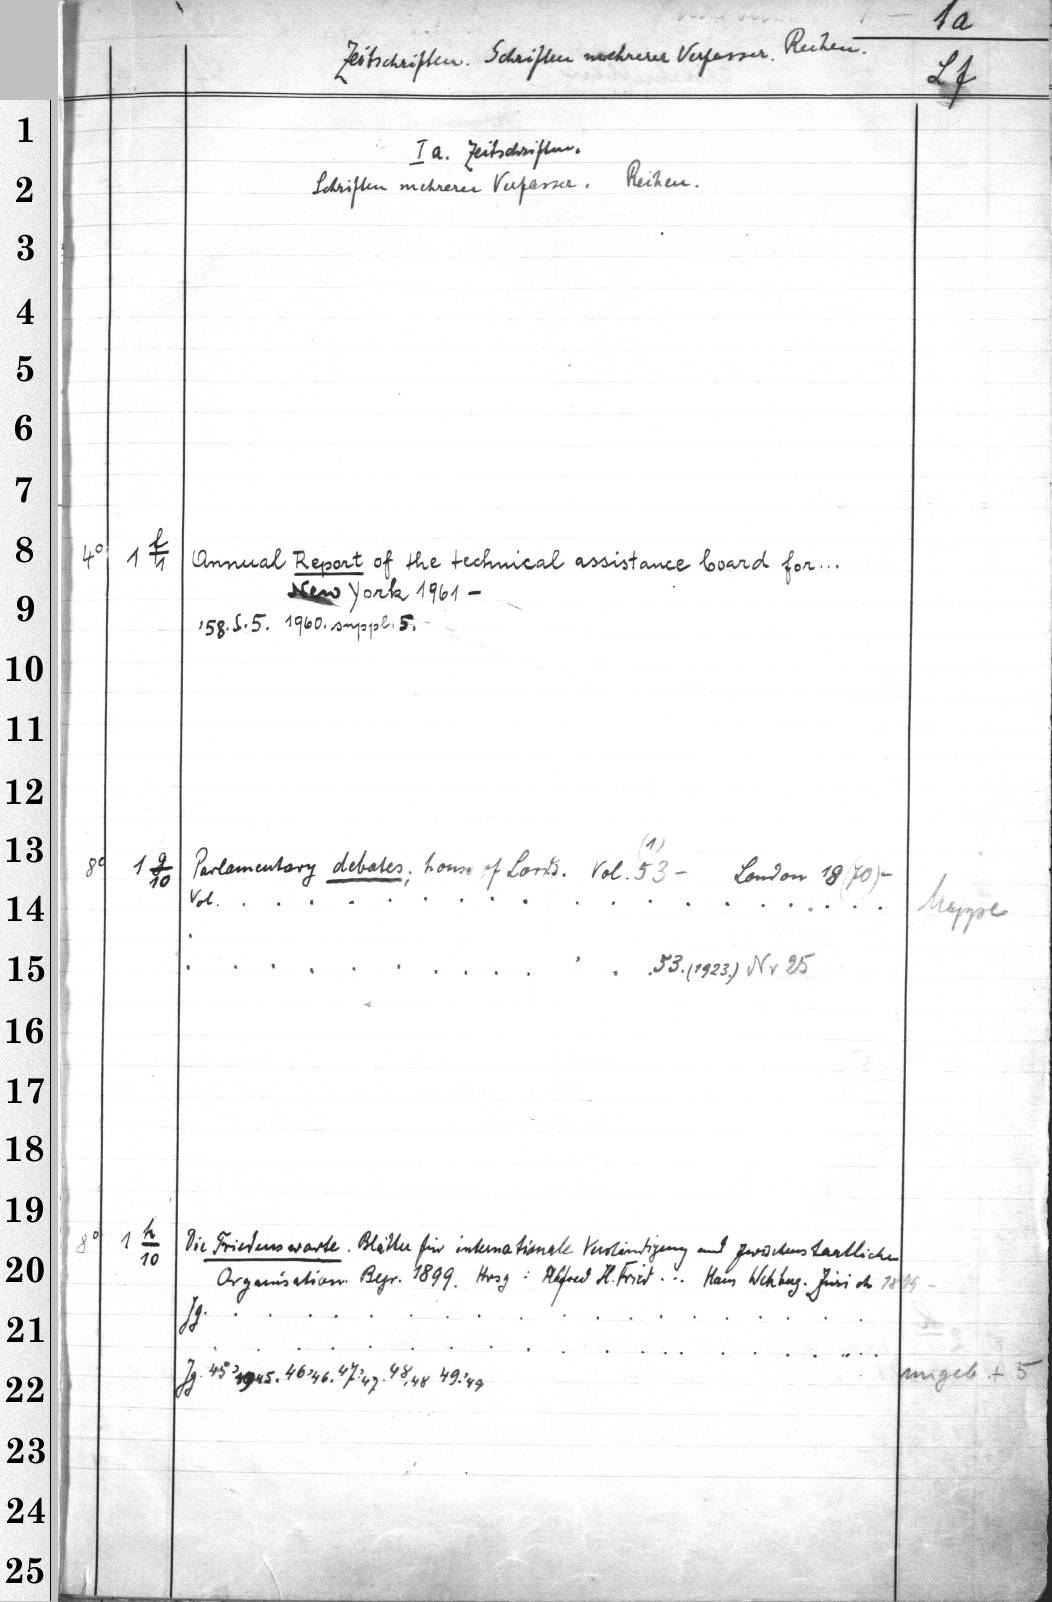 1a
Zeitschriften. Schriften mehrerer Verfasser. Reihen.
Lf
1
I a. Zeitschriften.
2 Schriften mehrerer Verfasser. Reihen.
3
4
5
6
7
8 4° 1 f/1 Annual Report of the technical assistance board for...
9 New York 1961 -
'58.S.5. 1960. suppl. 5.
10
11
12
(1)
13 8° 1 g/10 Parlamentary debates; house of Lords. Vol. 53 - London 18(70)-
14 Vol. . . . . . . . . . . . . . . . . . . . Mappe
15 . . . . . . . . . . . .53.(1923.) Nr 25
16
17
18
19
8° 1 h/10 Die Friedenswarte. Blätter für internationale Verständigung und zwischenstaatliche
20 Organisation. Begr. 1899. Hrsg: Alfred H. Fried ... Hans Wehberg. Zürich 1899 -
21 Jg. . . . . . . . . . . . . . . .
22 Jg. 45 '1945. 46 '46. 47 '47. 48 '48 49. '49 ungeb. + 5
23
24
25